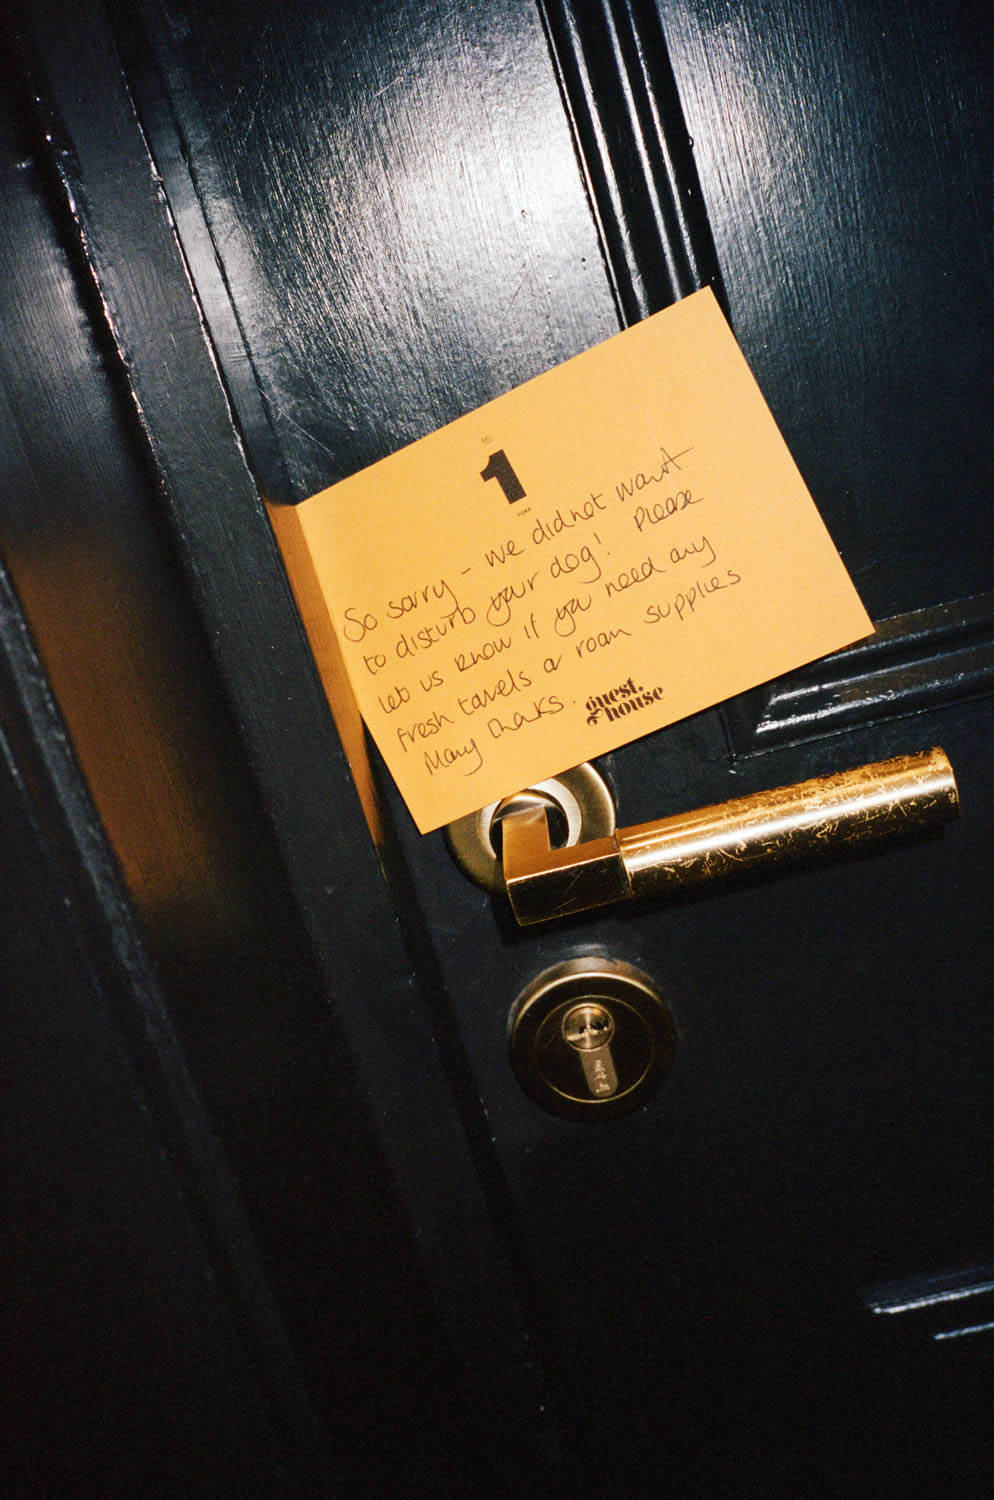 NO.
1
YORK
So sorry - we did not want
to disturb your dog! Please
let us know if you need any
fresh towels or room supplies
Many thanks.
guest.
house